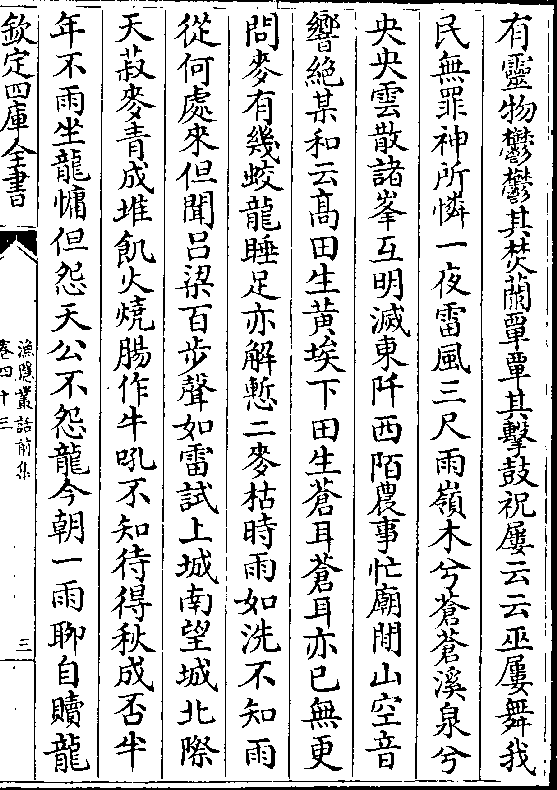 有靈物鬱鬱其焚蘭罩罩其擊鼓祝屢云云巫屢舞我
民無罪神所憐一夜雷風三尺雨嶺木兮蒼蒼溪泉兮
央央雲散諸峯互明滅東阡西陌農事忙廟閉山空音
響絶某和云髙田生黄埃下田生蒼耳蒼耳亦已無更
問麥有幾蛟龍睡足亦解慙二麥枯時雨如洗不知雨
從何處來但聞吕梁百步聲如雷試上城南望城北際
天菽麥青成堆飢火燒腸作牛吼不知待得秋成否半
年不雨坐龍慵但怨天公不怨龍今朝一雨聊自贖龍
欽定四庫全書
漁隱叢話前集
卷四十三
三